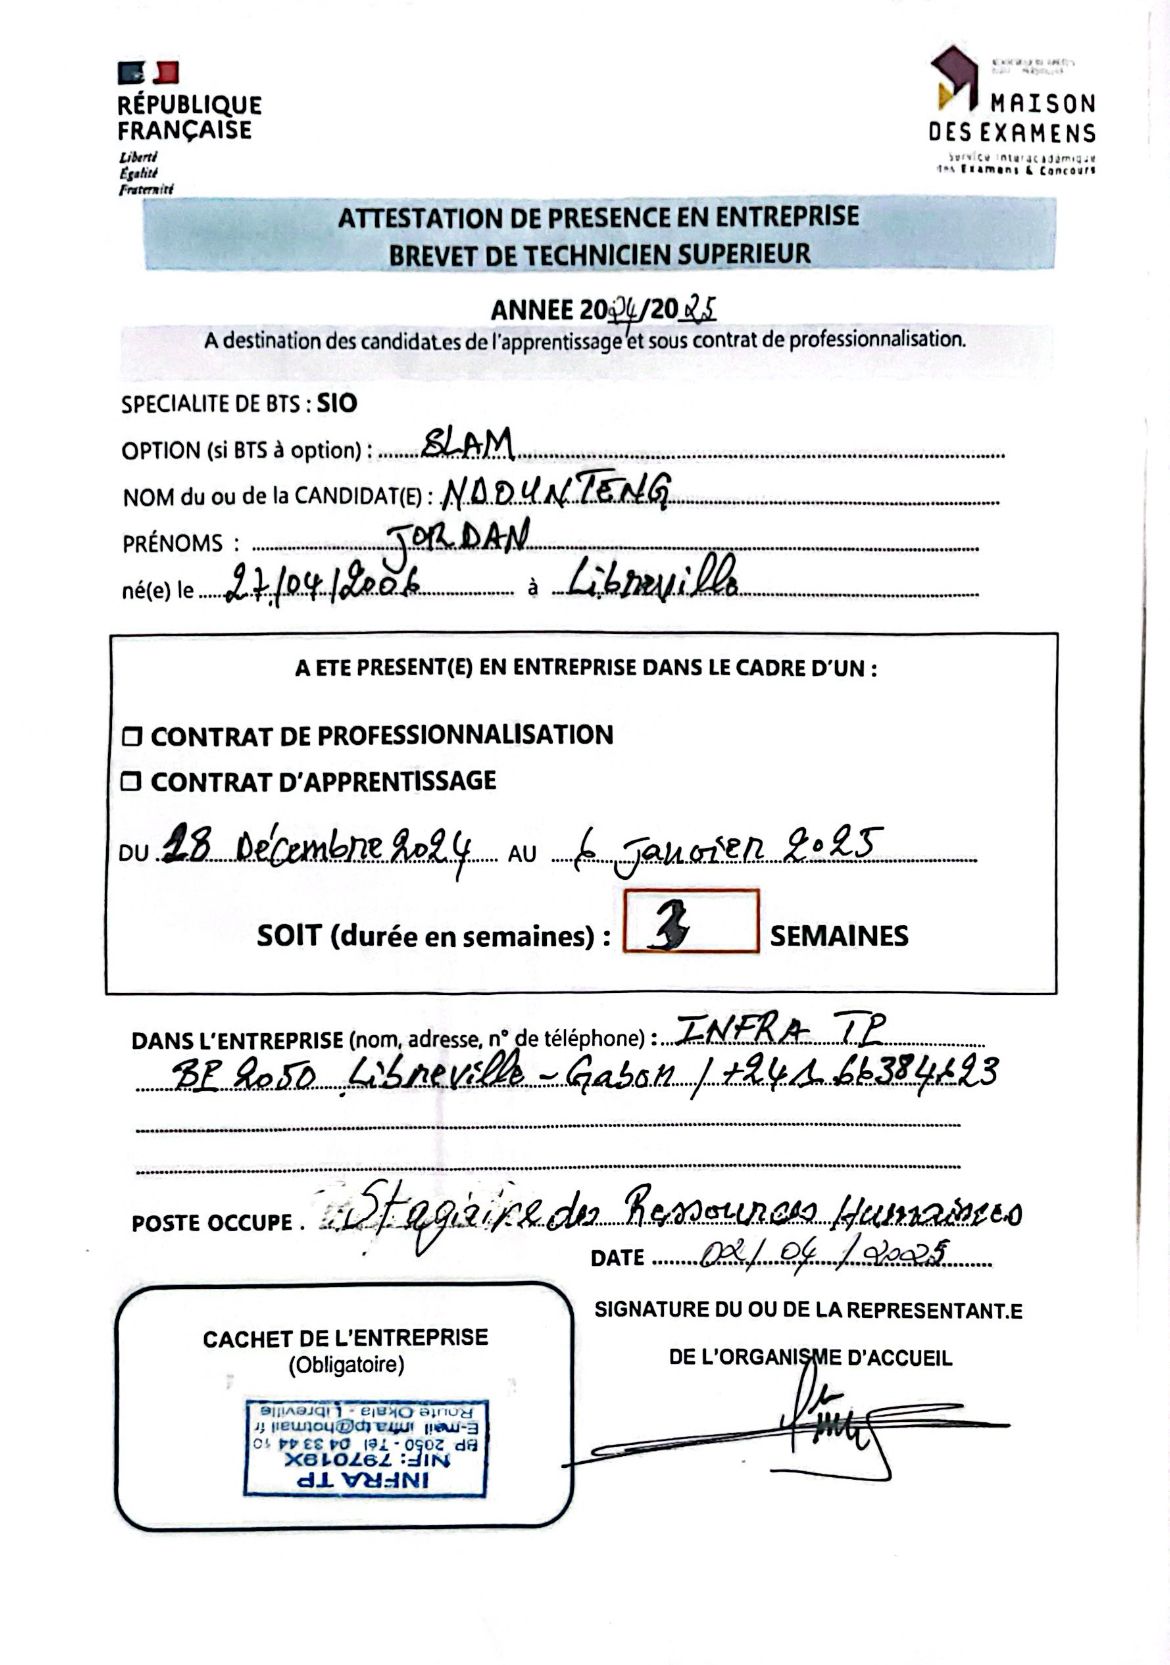 RÉPUBLIQUE
FRANÇAISE
Liberté
Égalité
Fraternité
MAISON
DES EXAMENS
Service Interacadémique
des Examens & Concours
ATTESTATION DE PRESENCE EN ENTREPRISE
BREVET DE TECHNICIEN SUPERIEUR
ANNEE 2024/2025
A destination des candidat.es de l'apprentissage et sous contrat de professionnalisation.
SPECIALITE DE BTS : SIO
OPTION (si BTS à option) : SLAM
NOM du ou de la CANDIDAT(E) : NDOUNTENG
PRÉNOMS : JORDAN
né(e) le 27/04/2006 à Libreville
A ETE PRESENT(E) EN ENTREPRISE DANS LE CADRE D'UN :
☐ CONTRAT DE PROFESSIONNALISATION
☐ CONTRAT D'APPRENTISSAGE
DU 18 Décembre 2024 AU 6 Janvier 2025
SOIT (durée en semaines) : 3 SEMAINES
DANS L'ENTREPRISE (nom, adresse, n° de téléphone) : INFRA TP
BP 2050 Libreville - Gabon / +241
POSTE OCCUPE . Stagiaire des Ressources Humaines
DATE 02/04/2025
CACHET DE L'ENTREPRISE
(Obligatoire)
SIGNATURE DU OU DE LA REPRESENTANT.E
DE L'ORGANISME D'ACCUEIL
INFRA TP
NIF: 797019X
BP 2050 - Tél 04 33 44 10
E-mail infra.tp@hotmail.fr
Route Okala - Libreville